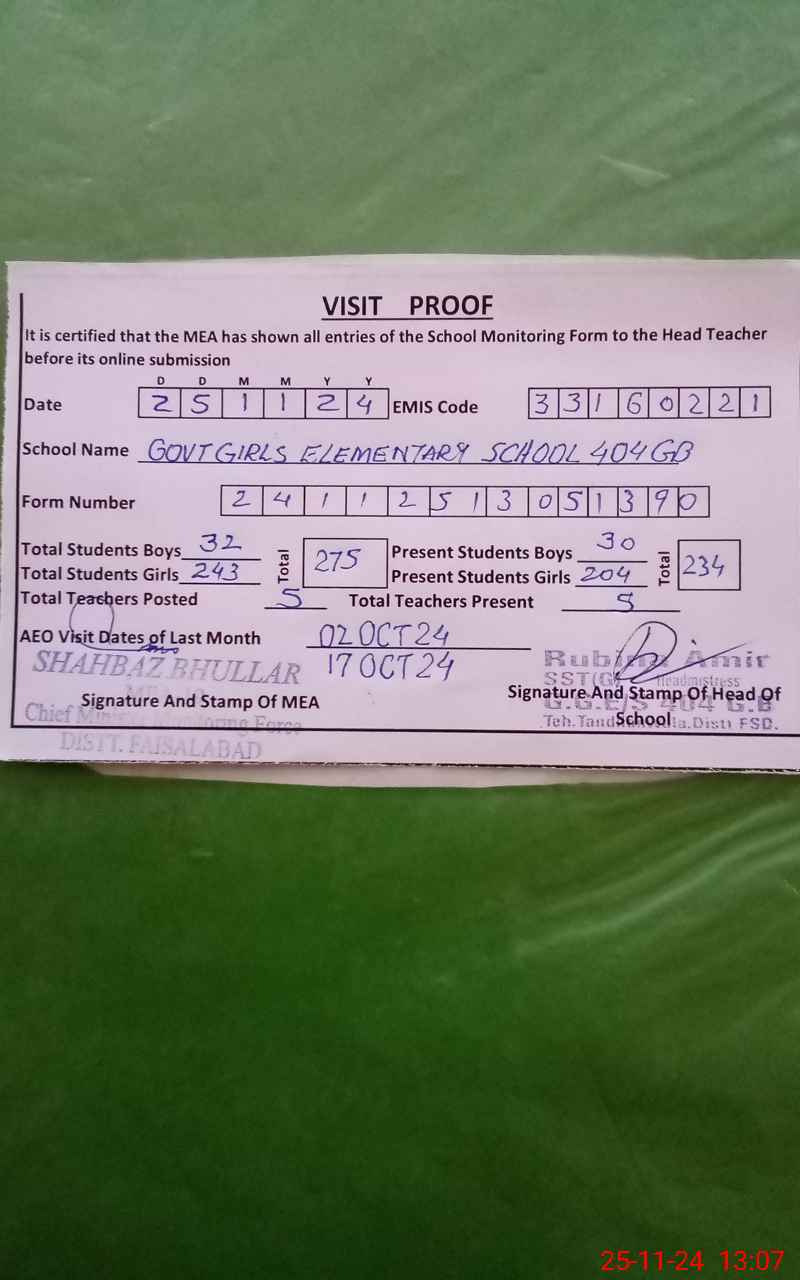 VISIT PROOF
It is certified that the MEA has shown all entries of the School Monitoring Form to the Head Teacher
before its online submission
D D M M Y Y
Date 2 5 1 1 2 4 EMIS Code 3 3 1 6 0 2 2 1
School Name GOVT GIRLS ELEMENTARY SCHOOL 404 GB
Form Number 2 4 1 1 2 5 1 3 0 5 1 3 9 0
Total Students Boys 32 Total 275 Present Students Boys 30 Total 234
Total Students Girls 243 Present Students Girls 204
Total Teachers Posted 5 Total Teachers Present 5
AEO Visit Dates of Last Month 02 OCT 24
17 OCT 24
SHAHBAZ BHULLAR
Signature And Stamp Of MEA
Chief Monitoring Force
DISTT. FAISALABAD
Amir
SST(G) Headmistress
Signature And Stamp Of Head Of
School
G.G.E/S 404 G.B
Teh. Distt FSD.
25-11-24 13:07